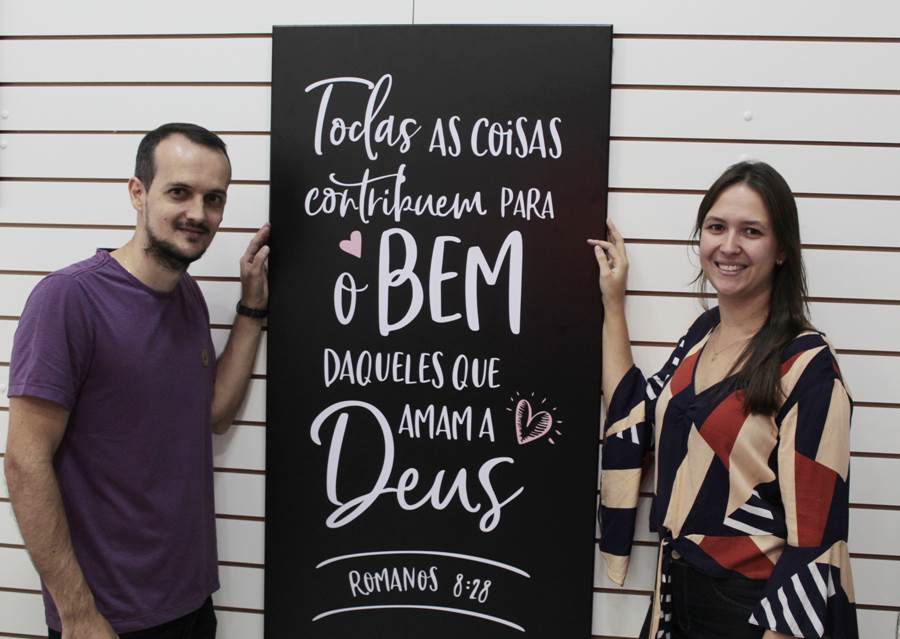 Todas AS COISAS
contribuem PARA
o BEM
DAQUELES QUE
AMAM A
Deus
ROMANOS 8:28